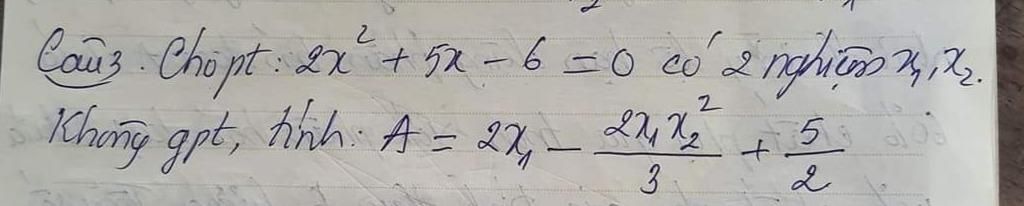 Câu 3. Cho pt: 2x² + 5x - 6 = 0 có 2 nghiệm x₁, x₂.
Không gpt, tính: A = 2x₁ - \frac{2x₁x₂²}{3} + \frac{5}{2}